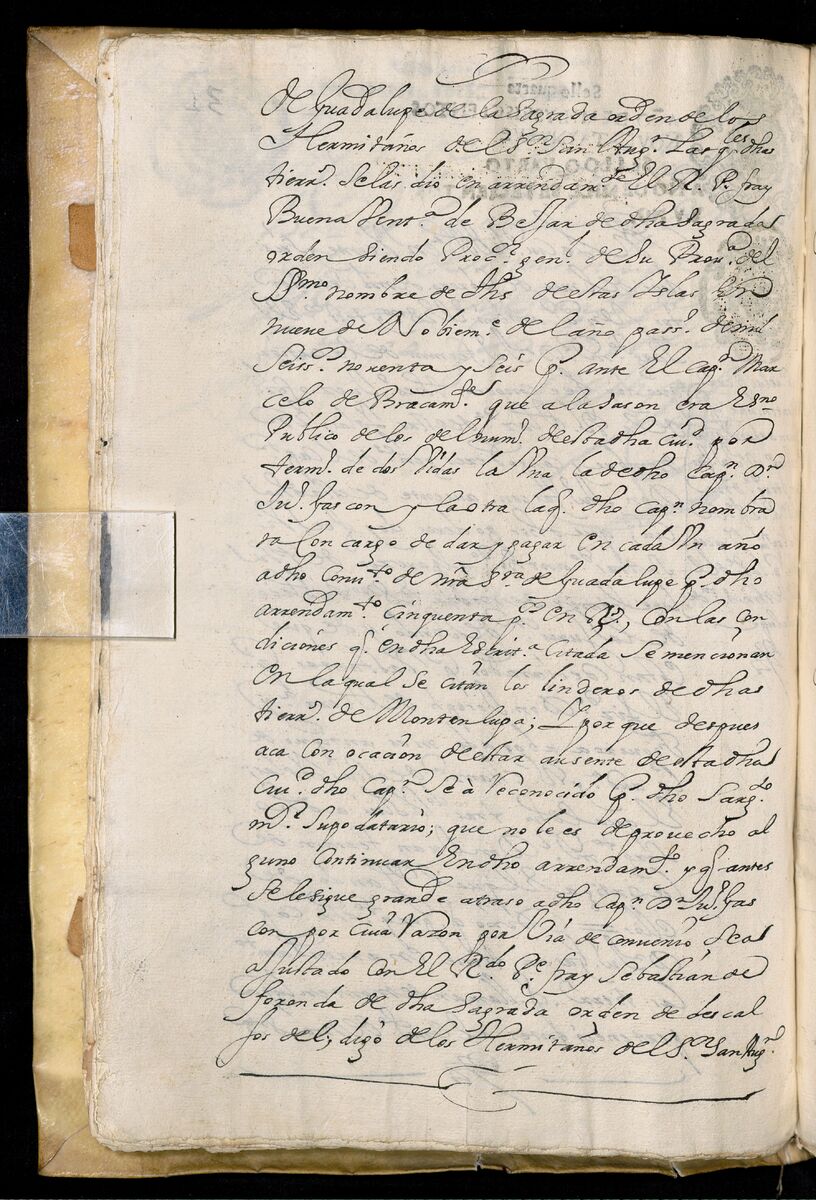 de Guadalupe de la Sagrada orden de los
Hermitaños del Sr. San Aug.n Las q.les dhas
tierr.s se las dio en arrendam.to El R. P. fray
Buena Vent.a de Bejjar de dha Sagrada
orden siendo Proc.or gen.l de Su Prou.a del
SSmo. nombre de Jhs de estas Yslas En
nueue de Nobiem.e del año pass.o de mil
Seiss.os nouenta y seis p.r ante El Cap.n Mar
celo de Bracam.te que a la sason era Esno.
Publico de los del num.o de esta dha Ciu.d por
term.o de dos Vidas la Vna la de dho Cap.n Dn.
Ju.o fascon y la otra la q.e dho Cap.n nombra
ra Con cargo de dar y pagar en cada Vn año
a dho Conu.to de nra Sra. de Guadalupe p.r dho
arrendam.to Cinquenta p.s en Rs., Con las con
diciones q.e en dha Escrit.a Citada Se mencionan
En la qual Se citan los linderos de dhas
tierr.s de Montenlupa; Y por que despues
aca Con ocacion de estar ausente de esta dha
Ciu.d dho Cap.n Se à reconocido p.r dho Sarg.to
m.r Su podatario; que no le es de prouecho al
guno Continuar En dho arrendam.to y q.e antes
Se le sigue grande atraso a dho Cap.n Dn Ju.o fas
con por Cuia razon por Via de Conuenio Se a
ajustado con El R.do P.e fray Sebastian de
foronda de dha Sagrada orden de descal
sos del, digo de los Hermitaños del Sr. San Aug.n